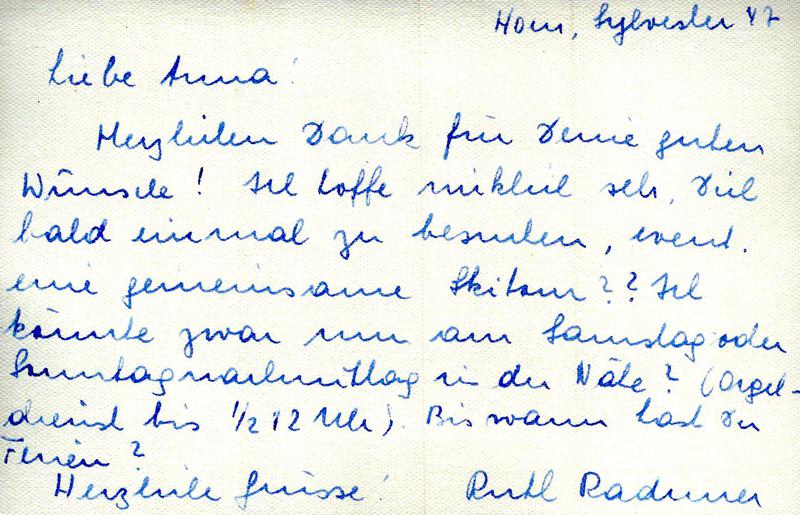 Horn, Sylvester 47
Liebe Anna!
Herzlichen Dank für Deine guten
Wünsche! Ich hoffe wirklich sehr, Dich
bald einmal zu besuchen, event.
eine gemeinsame Skitour?? Ich
könnte zwar nur am Samstag oder
Sonntagnachmittag in der Nähe? (Orgel-
dienst bis 1/2 12 Uhr). Bis wann hast Du
Ferien?
Herzliche Grüsse! Ruth Raduner